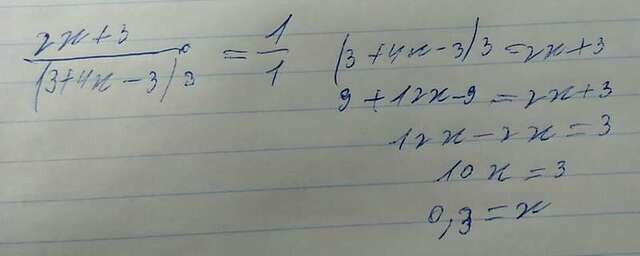 2x+3
(3+4x-3)3
= 1
1
(3+4x-3)3=2x+3
9+12x-9=2x+3
12x-2x=3
10x=3
0,3=x